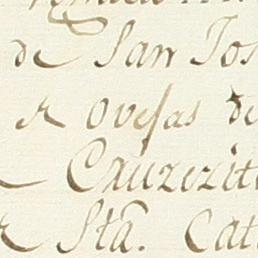 de San Jos
Ovejas de
Cruzezit
Sta. Cat